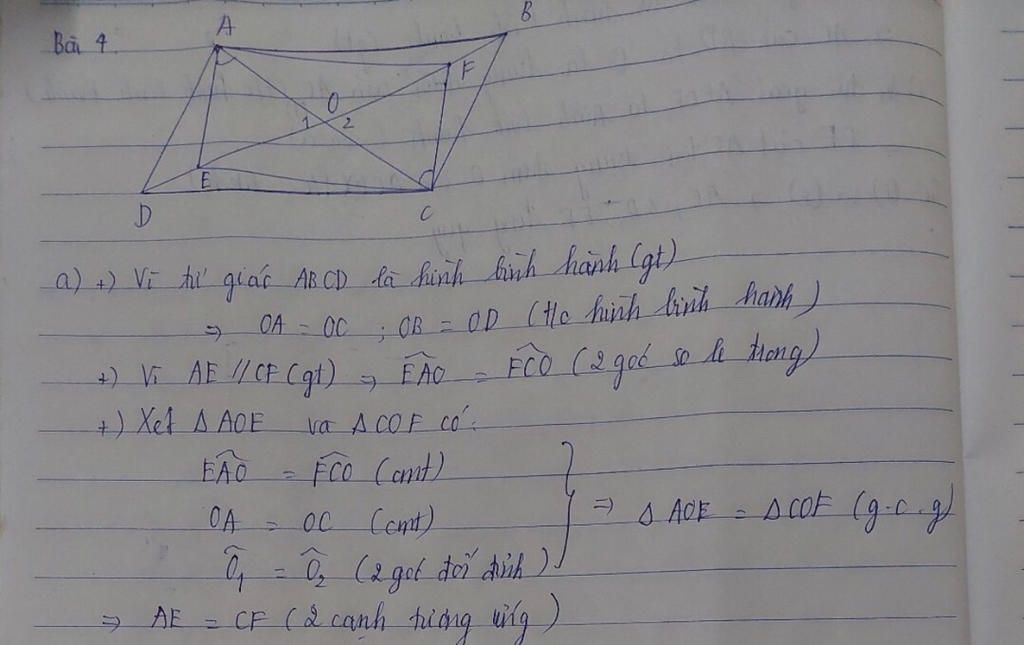 Bài 4.
A
B
F
O
1 2
E
D
C
a) +) Vì tứ giác ABCD là hình bình hành (gt)
⇒ OA = OC ; OB = OD (t/c hình bình hành)
+) Vì AE // CF (gt) ⇒ \widehat{EAO} = \widehat{FCO} (2 góc so le trong)
+) Xét Δ AOE và Δ COF có:
\widehat{EAO} = \widehat{FCO} (cmt)
OA = OC (cmt)
\widehat{O}_1 = \widehat{O}_2 (2 góc đối đỉnh)
⇒ Δ AOE = Δ COF (g.c.g)
⇒ AE = CF (2 cạnh tương ứng)